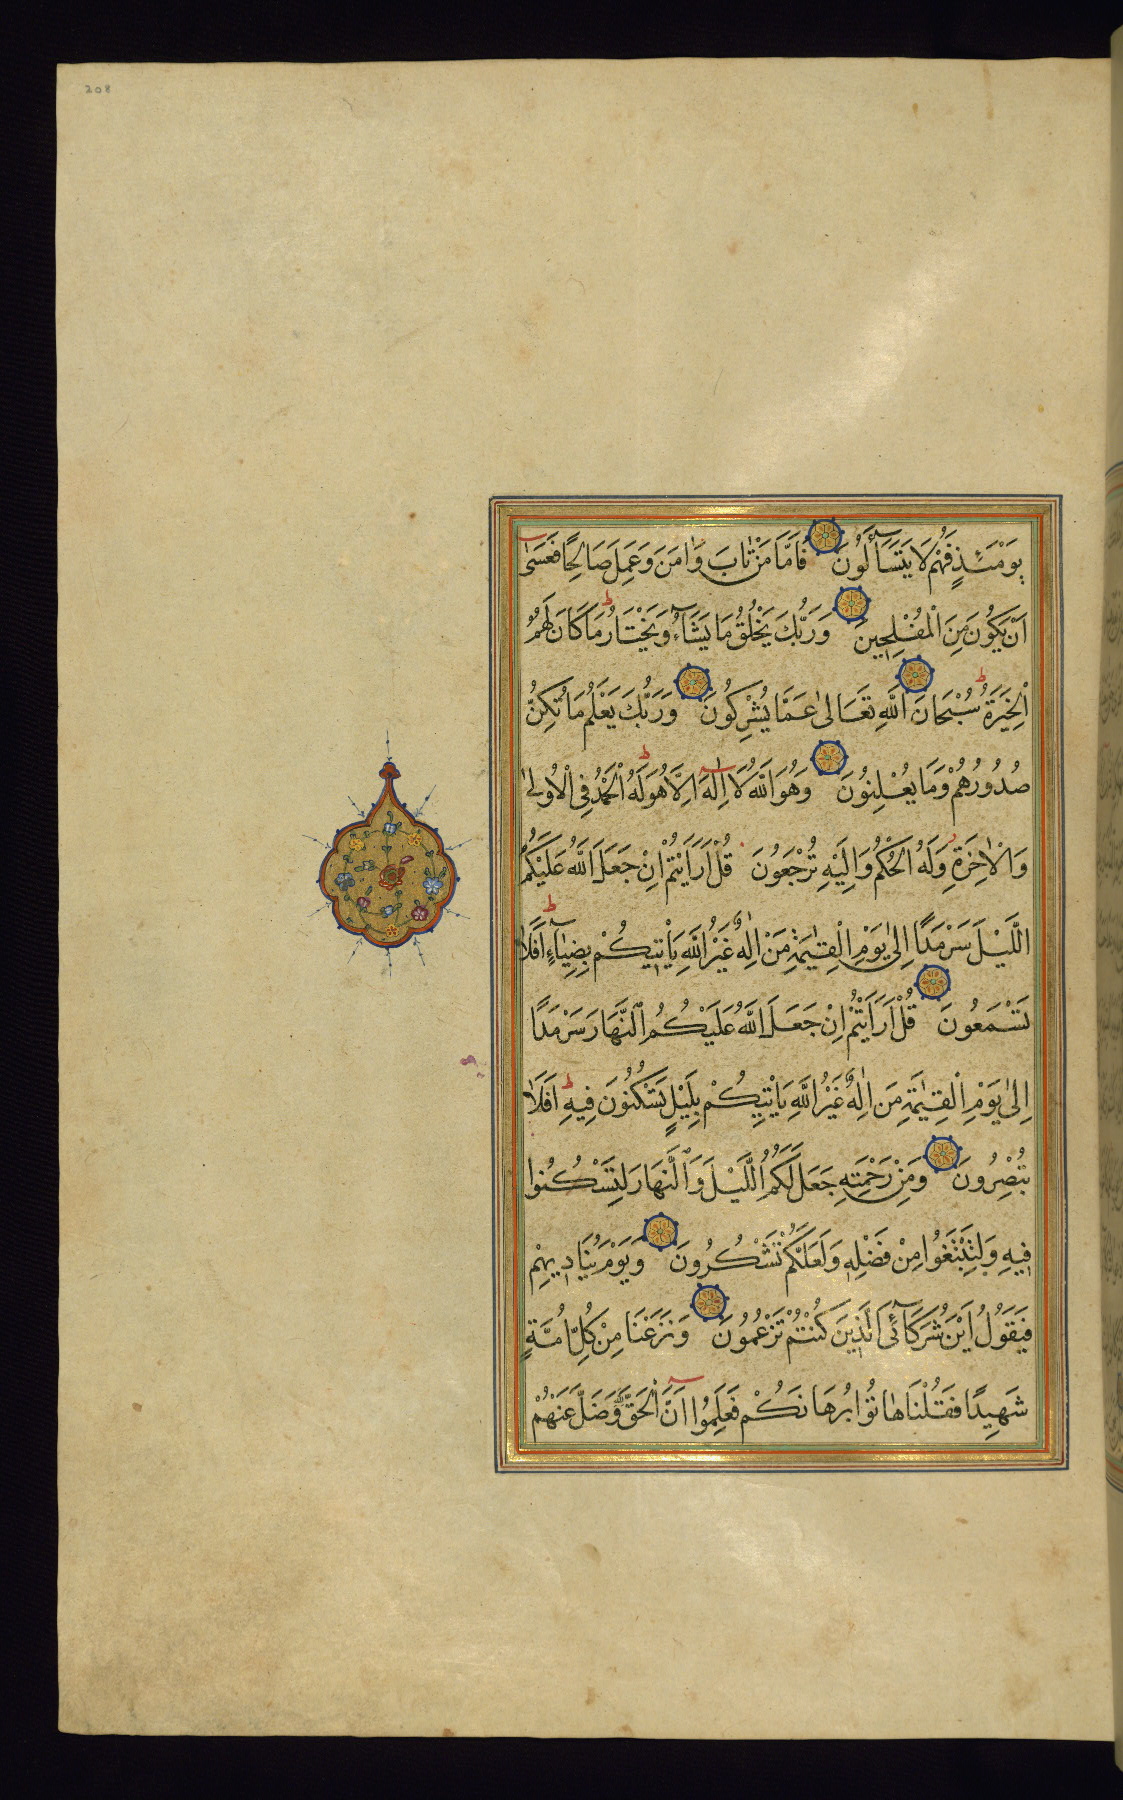 208
يَوْمَئِذٍ فَهُمْ لَا يَتَسَآءَلُونَ فَاَمَّا مَنْ تَابَ وَاٰمَنَ وَعَمِلَ صَالِحًا فَعَسٰى
اَنْ يَكُونَ مِنَ الْمُفْلِحِينَ وَرَبُّكَ يَخْلُقُ مَا يَشَآءُ وَيَخْتَارُ ط مَا كَانَ لَهُمُ
الْخِيَرَةُ ط سُبْحَانَ اللّٰهِ تَعَالٰى عَمَّا يُشْرِكُونَ وَرَبُّكَ يَعْلَمُ مَا تُكِنُّ
صُدُورُهُمْ وَمَا يُعْلِنُونَ وَهُوَ اللّٰهُ لَآ اِلٰهَ اِلَّا هُوَ ط لَهُ الْحَمْدُ فِى الْاُولٰى
وَالْاٰخِرَةِ وَلَهُ الْحُكْمُ وَاِلَيْهِ تُرْجَعُونَ قُلْ اَرَاَيْتُمْ اِنْ جَعَلَ اللّٰهُ عَلَيْكُمُ
الَّيْلَ سَرْمَدًا اِلٰى يَوْمِ الْقِيٰمَةِ مَنْ اِلٰهٌ غَيْرُ اللّٰهِ يَاْتِيكُمْ بِضِيَآءٍ ط اَفَلَا
تَسْمَعُونَ قُلْ اَرَاَيْتُمْ اِنْ جَعَلَ اللّٰهُ عَلَيْكُمُ النَّهَارَ سَرْمَدًا
اِلٰى يَوْمِ الْقِيٰمَةِ مَنْ اِلٰهٌ غَيْرُ اللّٰهِ يَاْتِيكُمْ بِلَيْلٍ تَسْكُنُونَ فِيهِ ط اَفَلَا
تُبْصِرُونَ وَمِنْ رَحْمَتِهِ جَعَلَ لَكُمُ الَّيْلَ وَالنَّهَارَ لِتَسْكُنُوا
فِيهِ وَلِتَبْتَغُوا مِنْ فَضْلِهِ وَلَعَلَّكُمْ تَشْكُرُونَ وَيَوْمَ يُنَادِيهِمْ
فَيَقُولُ اَيْنَ شُرَكَآئِىَ الَّذِينَ كُنْتُمْ تَزْعُمُونَ وَنَزَعْنَا مِنْ كُلِّ اُمَّةٍ
شَهِيدًا فَقُلْنَا هَاتُوا بُرْهَانَكُمْ فَعَلِمُوٓا اَنَّ الْحَقَّ لِلّٰهِ وَضَلَّ عَنْهُمْ